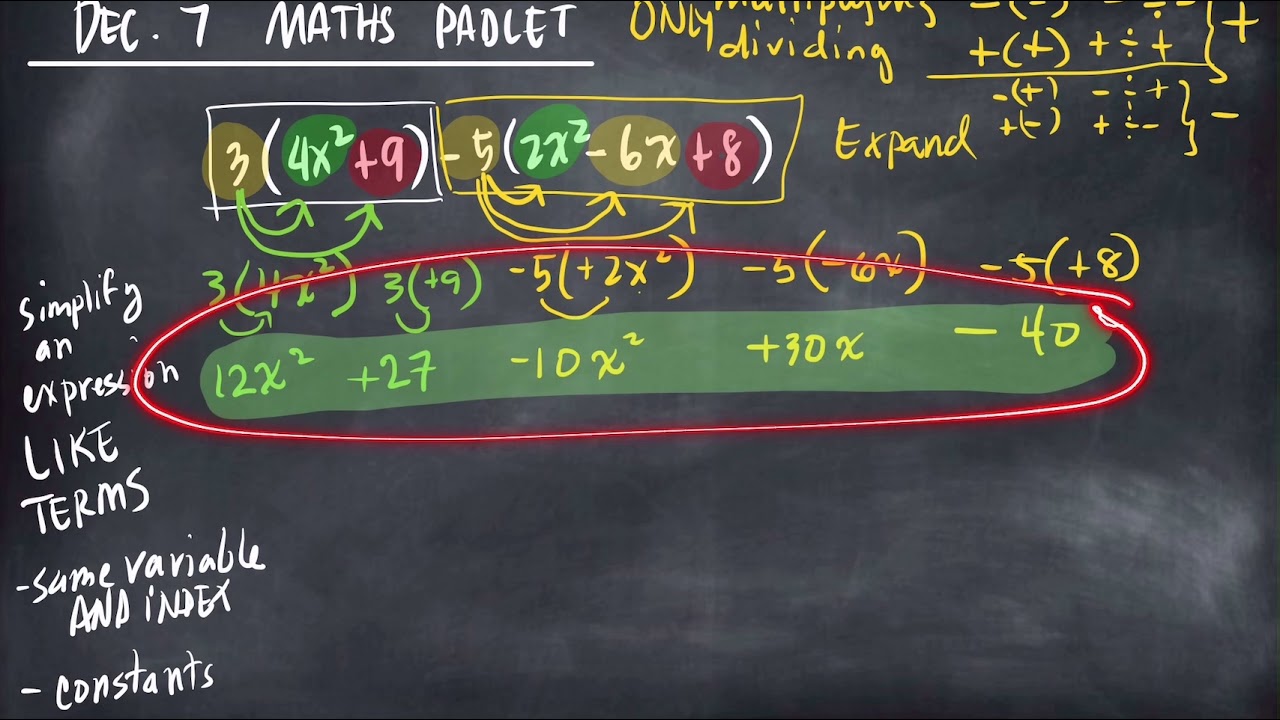 DEC. 7 MATHS PADLET
ONLY multiplying
dividing
-(-) - ÷ - } +
+(+) + ÷ +
-(+) - ÷ + } -
+(-) + ÷ -
Expand
3(4x²+9)-5(2x²-6x+8)
3(4x²) 3(+9) -5(+2x²) -5(-6x) -5(+8)
12x² +27 -10x² +30x - 40
simplify
an
expression
LIKE
TERMS
-same variable
AND INDEX
- constants